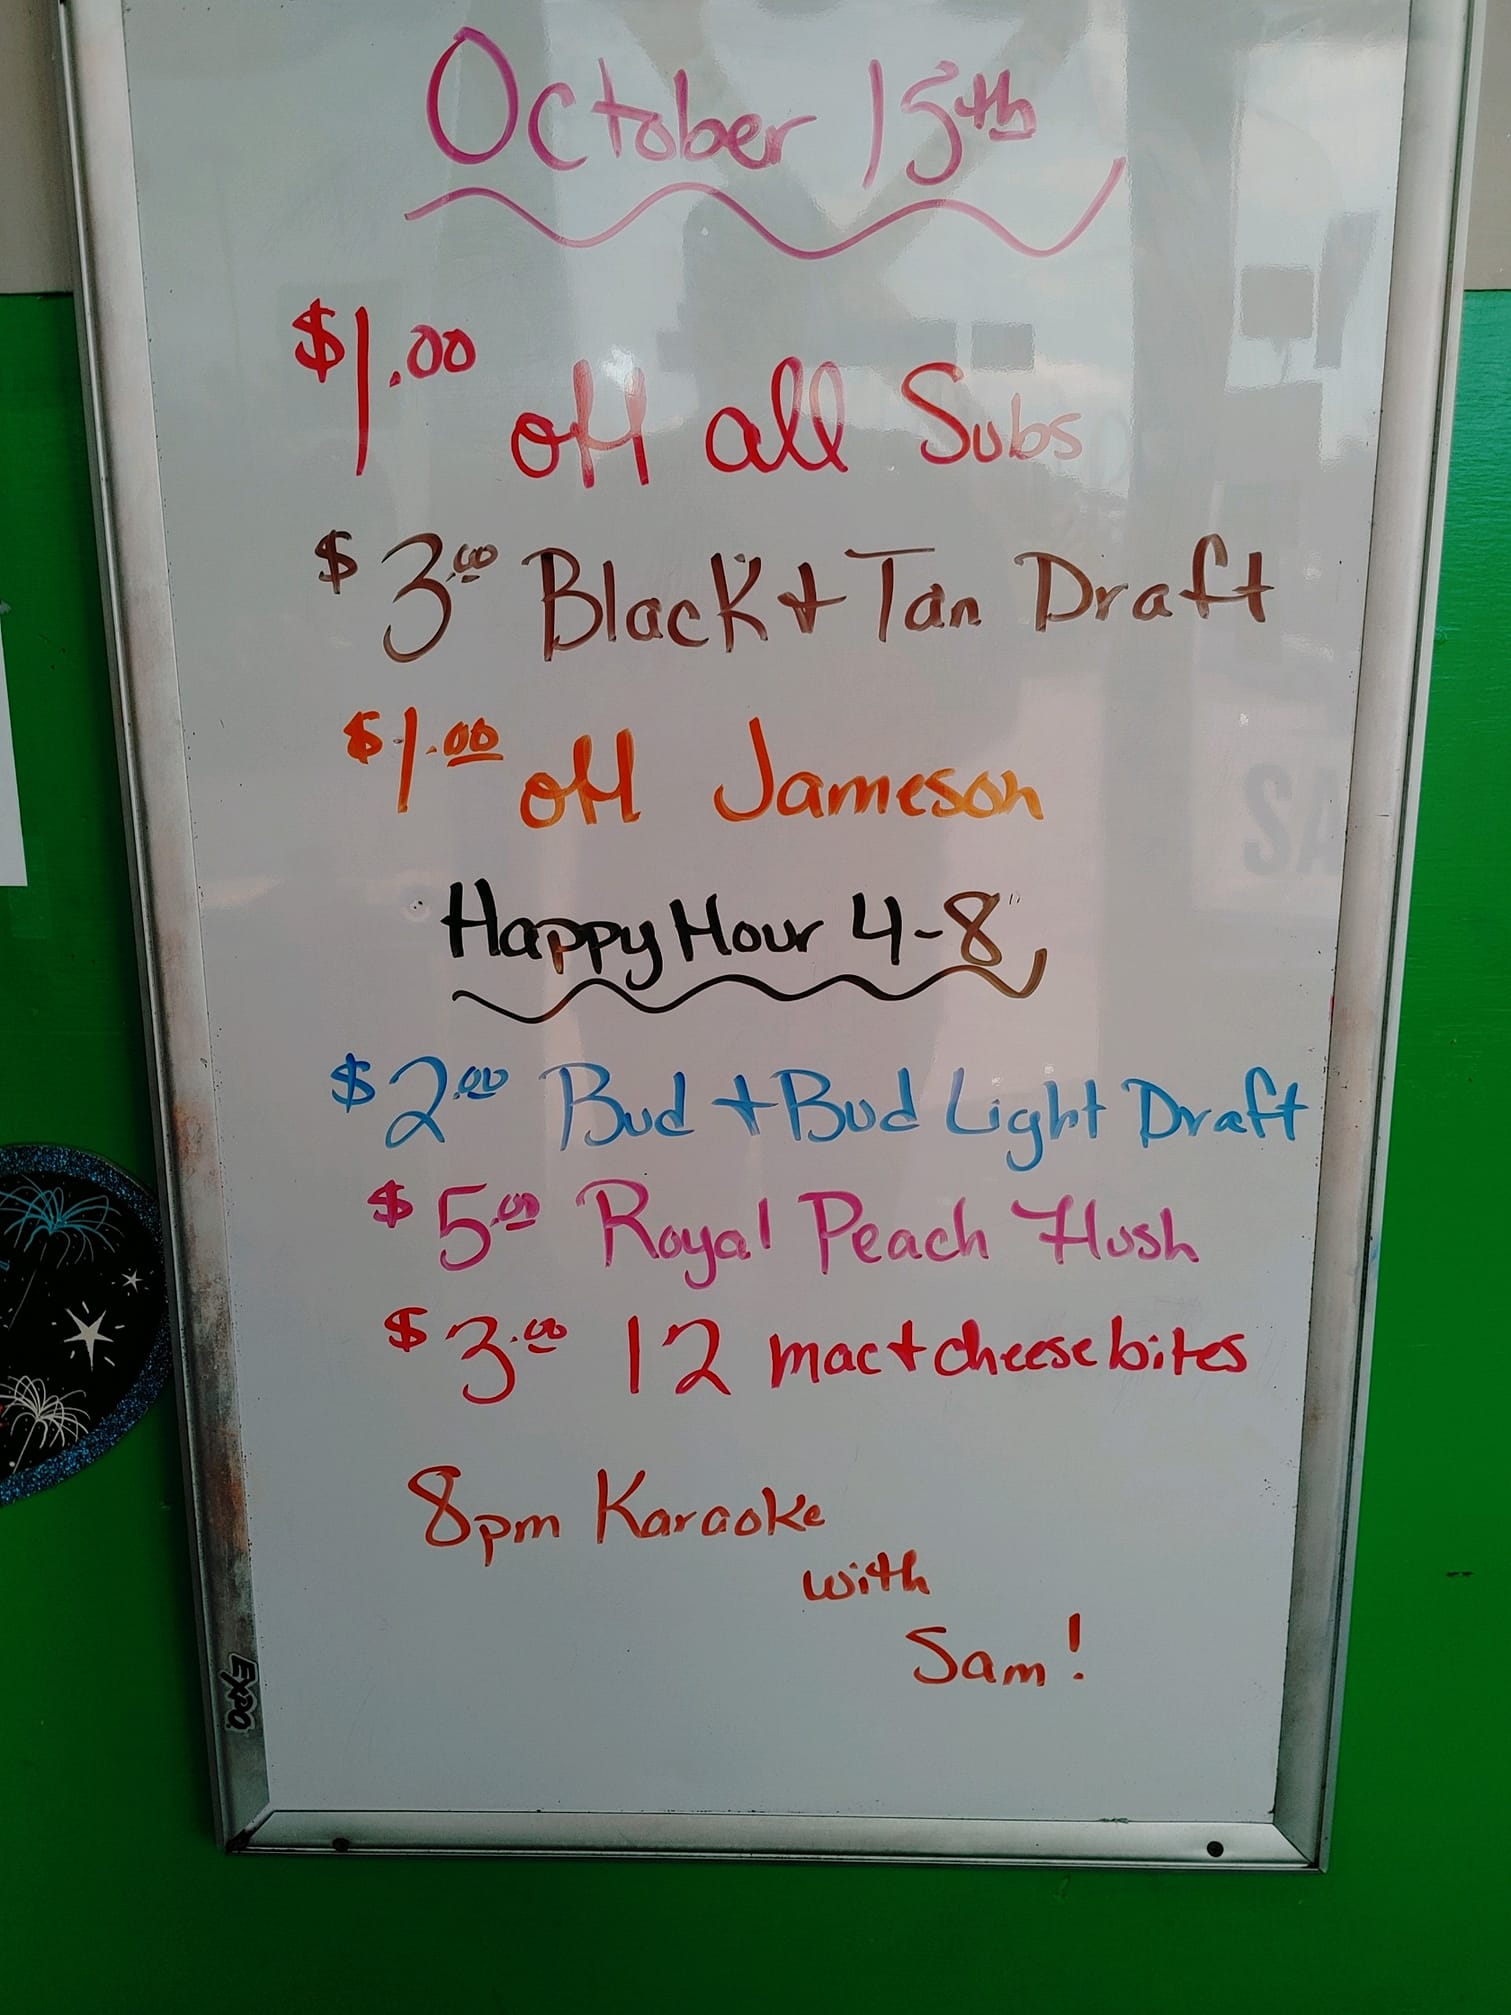 October 15th
$1.00 off all Subs
$3.00 Black + Tan Draft
$1.00 off Jameson
Happy Hour 4-8
$2.00 Bud + Bud Light Draft
$5.00 Royal Peach Flush
$3.00 12 mac + cheese bites
8pm Karaoke
with
Sam!
EXPO